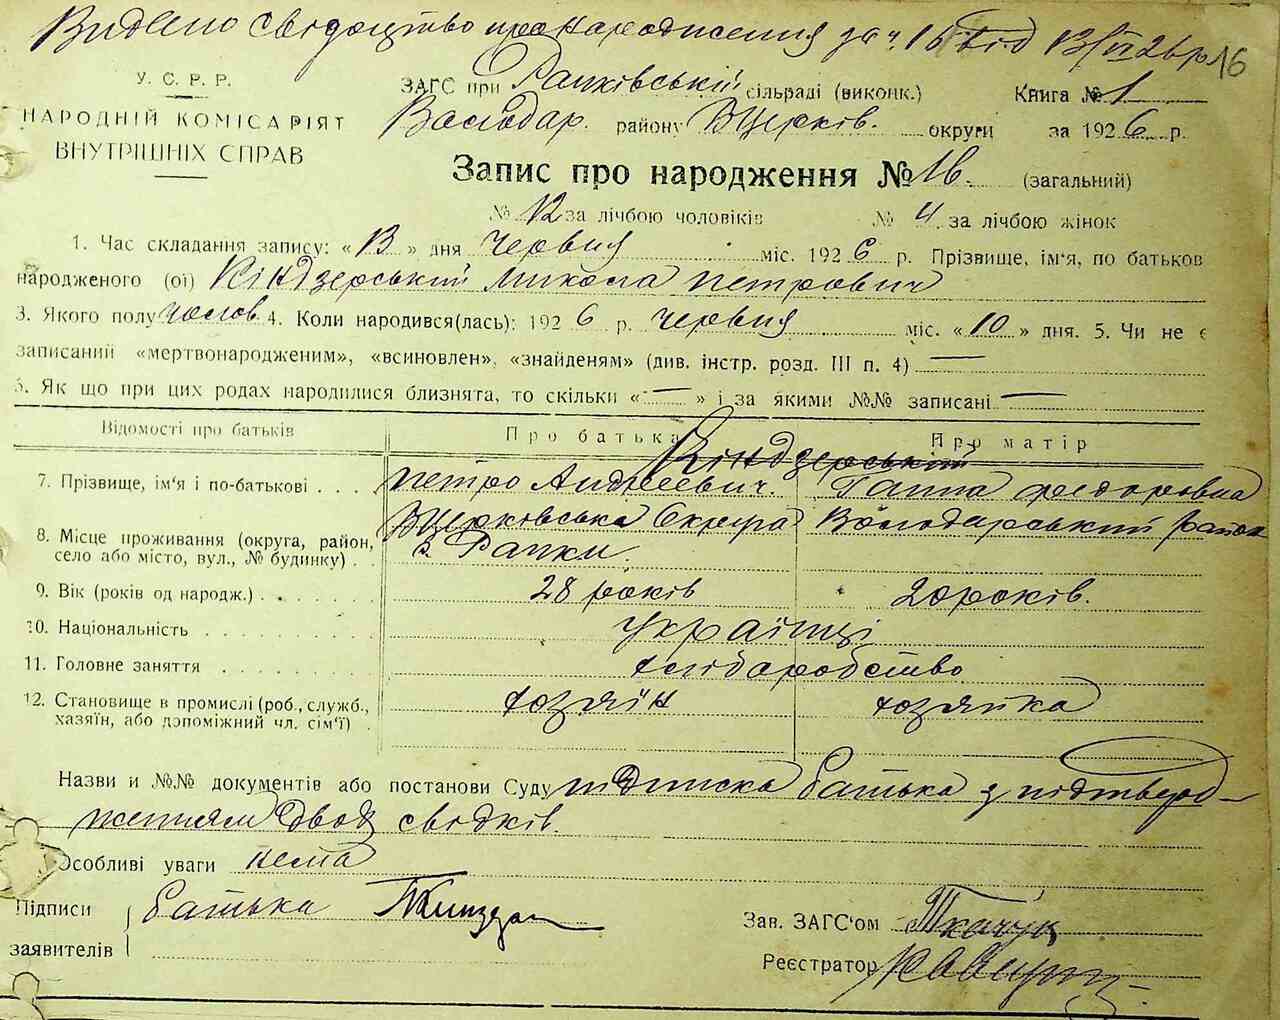 Видено свідоцтво про народження за ч. 16 від 13/VI 26 р 16
У. С. Р. Р.
НАРОДНІЙ КОМІСАРІЯТ
ВНУТРІШНІХ СПРАВ
ЗАГС при Рачківській сільраді (виконк.) Книга № 1
Володар. району БЦерків. округи за 1926 р.
Запис про народження № 16. (загальний)
№ 12 за лічбою чоловіків № 4 за лічбою жінок
1. Час складання запису: « 13 » дня червня міс. 1926 р. Прізвище, ім'я, по батьков
народженого (ої) Кіндзерський Микола Петрович
3. Якого полу чолов. 4. Коли народився(лась): 1926 р. червня міс. « 10 » дня. 5. Чи не є
записаний «мертвонародженим», «всиновлен», «знайденям» (див. інстр. розд. III п. 4) —
6. Як що при цих родах народилися близнята, то скільки « — » і за якими №№ записані —
Відомості про батьків Про батька Про матір
Кіндзерський
7. Прізвище, ім'я і по-батькові . . . Петро Андреевич. Ганна Федоровна
8. Місце проживання (округа, район, БЦерківська Округа Володарський район
село або місто, вул., № будинку) . . с. Рачки.
9. Вік (років од народж.) . . . . . 28 років 20 років.
10. Національність . . . . . . . . українці
11. Головне заняття . . . . . . хліборобство
12. Становище в промислі (роб., служб., хозяїн хозяйка
хазяїн, або допоміжний чл. сім'ї) .
Назви и №№ документів або постанови Суду підписка батька з підтверд-
женням двох свідків.
Особливі уваги нема
Підписи батька
заявителів
Зав. ЗАГС'ом Ткачук
Реєстратор